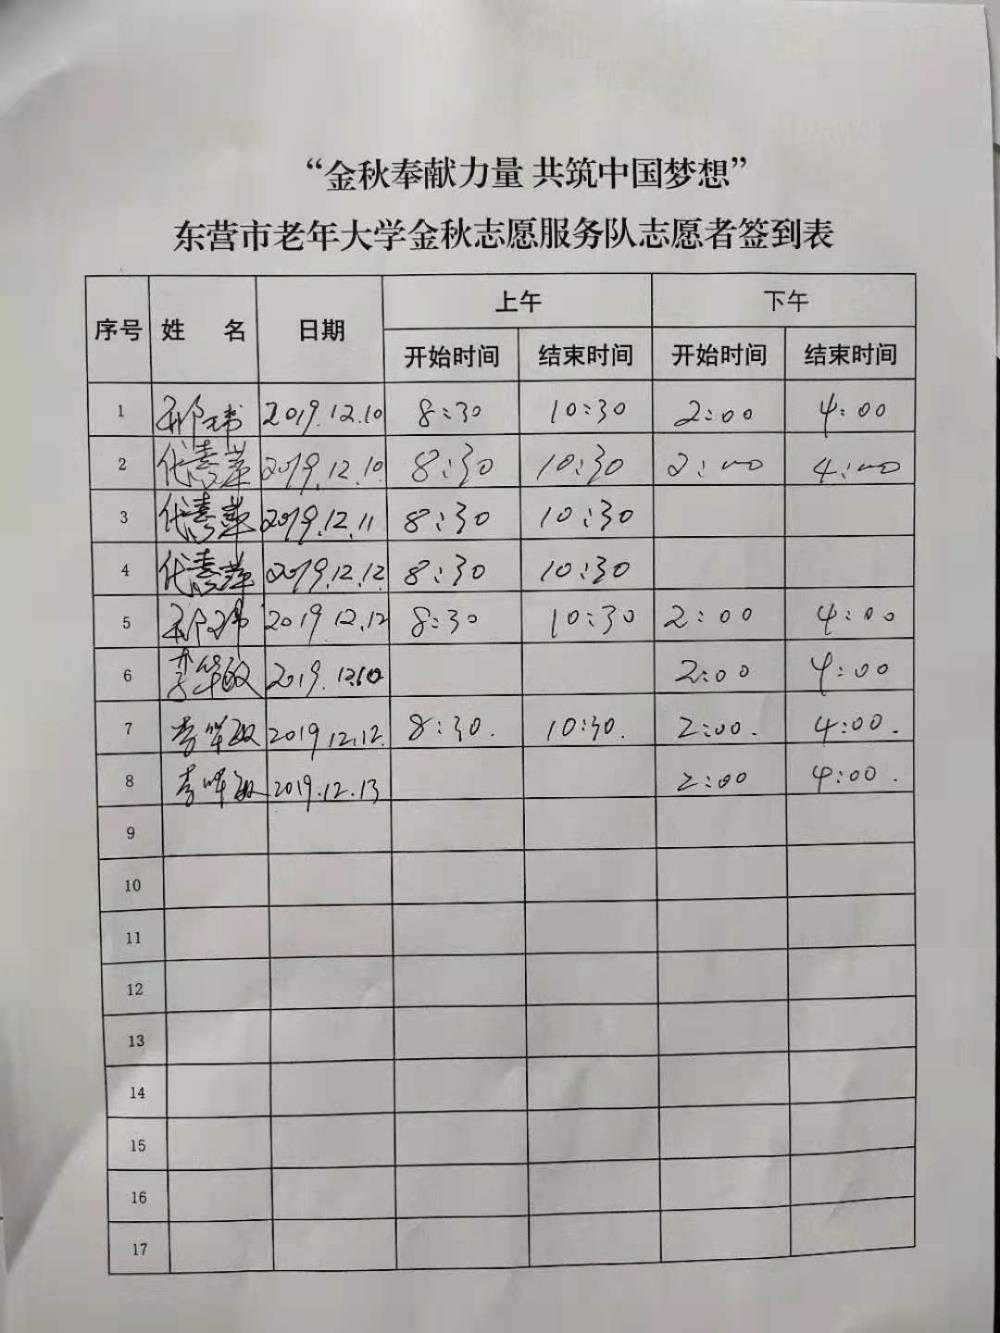 “金秋奉献力量 共筑中国梦想”
东营市老年大学金秋志愿服务队志愿者签到表
序号 姓 名 日期 上午 下午
开始时间 结束时间 开始时间 结束时间
1 邢玮 2019.12.10 8:30 10:30 2:00 4:00
2 代喜萍 2019.12.10 8:30 10:30 2:00 4:00
3 代喜萍 2019.12.11 8:30 10:30
4 代喜萍 2019.12.12 8:30 10:30
5 邢玮 2019.12.12 8:30 10:30 2:00 4:00
6 2019.12.10 2:00 4:00
7 2019.12.12. 8:30. 10:30. 2:00. 4:00.
8 2019.12.13 2:00 4:00.
9
10
11
12
13
14
15
16
17